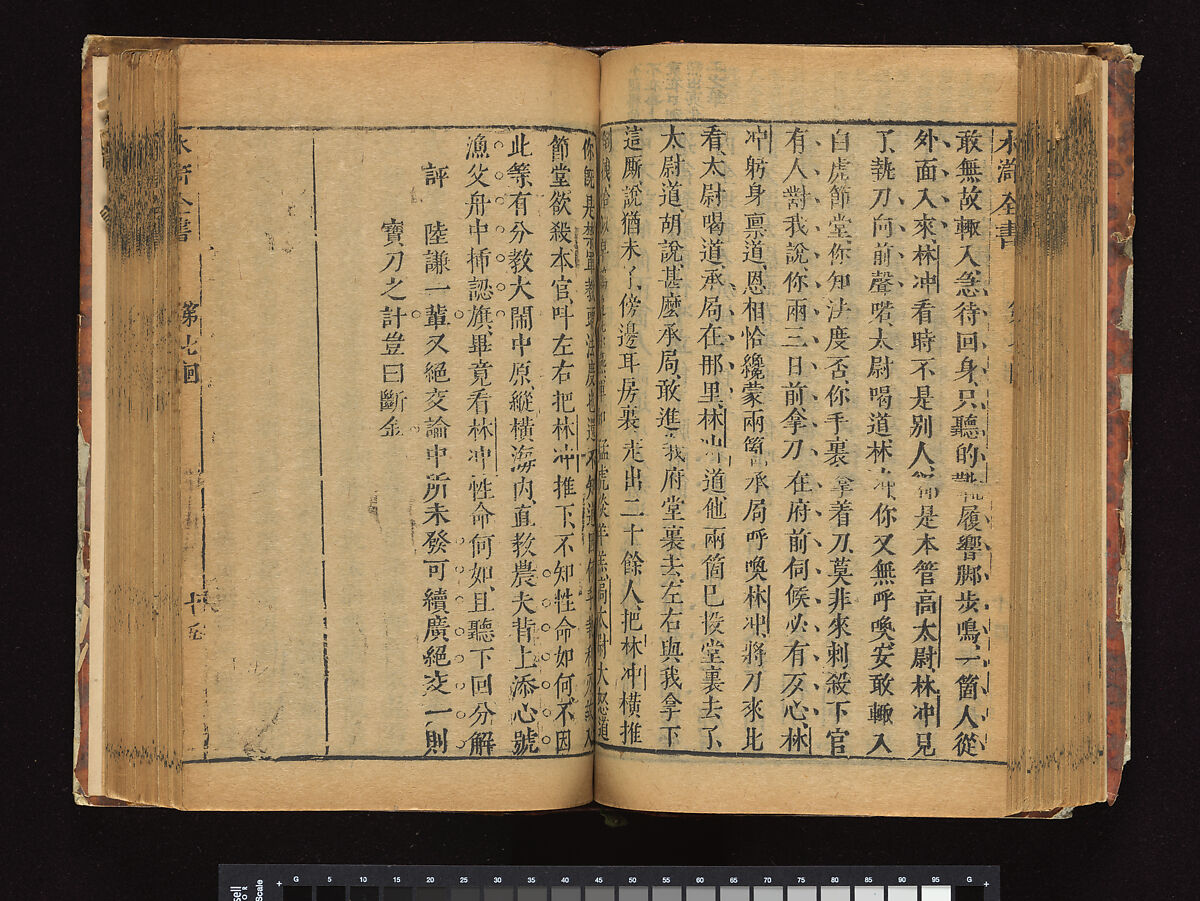 水滸全書
敢無故輒入急待回身只聽的靴履響脚步鳴一箇人從
外面入來林冲看時不是别人却是本管高太尉林冲見
了執刀向前聲喏太尉喝道林冲你又無呼喚安敢輒入
白虎節堂你知法度否你手裏拿着刀莫非來刺殺下官
有人對我說你兩三日前拿刀在府前伺候必有歹心林
冲躬身禀道恩相恰纔蒙兩箇承局呼喚林冲將刀來比
看太尉喝道承局在那里林冲道他兩箇已投堂裏去了
太尉道胡說甚麽承局敢進我府堂裏去左右與我拿下
這厮說猶未了傍邊耳房裏走出二十餘人把林冲橫推
太尉大怒道
你既是禁軍教頭法度也還不知道因何手執利刃故入
節堂欲殺本官呌左右把林冲推下不知性命如何不因
此等有分教大鬧中原縱橫海内直教農夫背上添心號
漁父舟中揷認旗畢竟看林冲性命何如且聽下回分解
評　陸謙一輩又絕交論中所未發可續廣絕交一則
寶刀之計豈曰斷金
水滸全書
第七回
十五
G 5 10 15 20 25 30 35 40 45 50 55 60 65 70 75 80 85 90 95 G
Scale